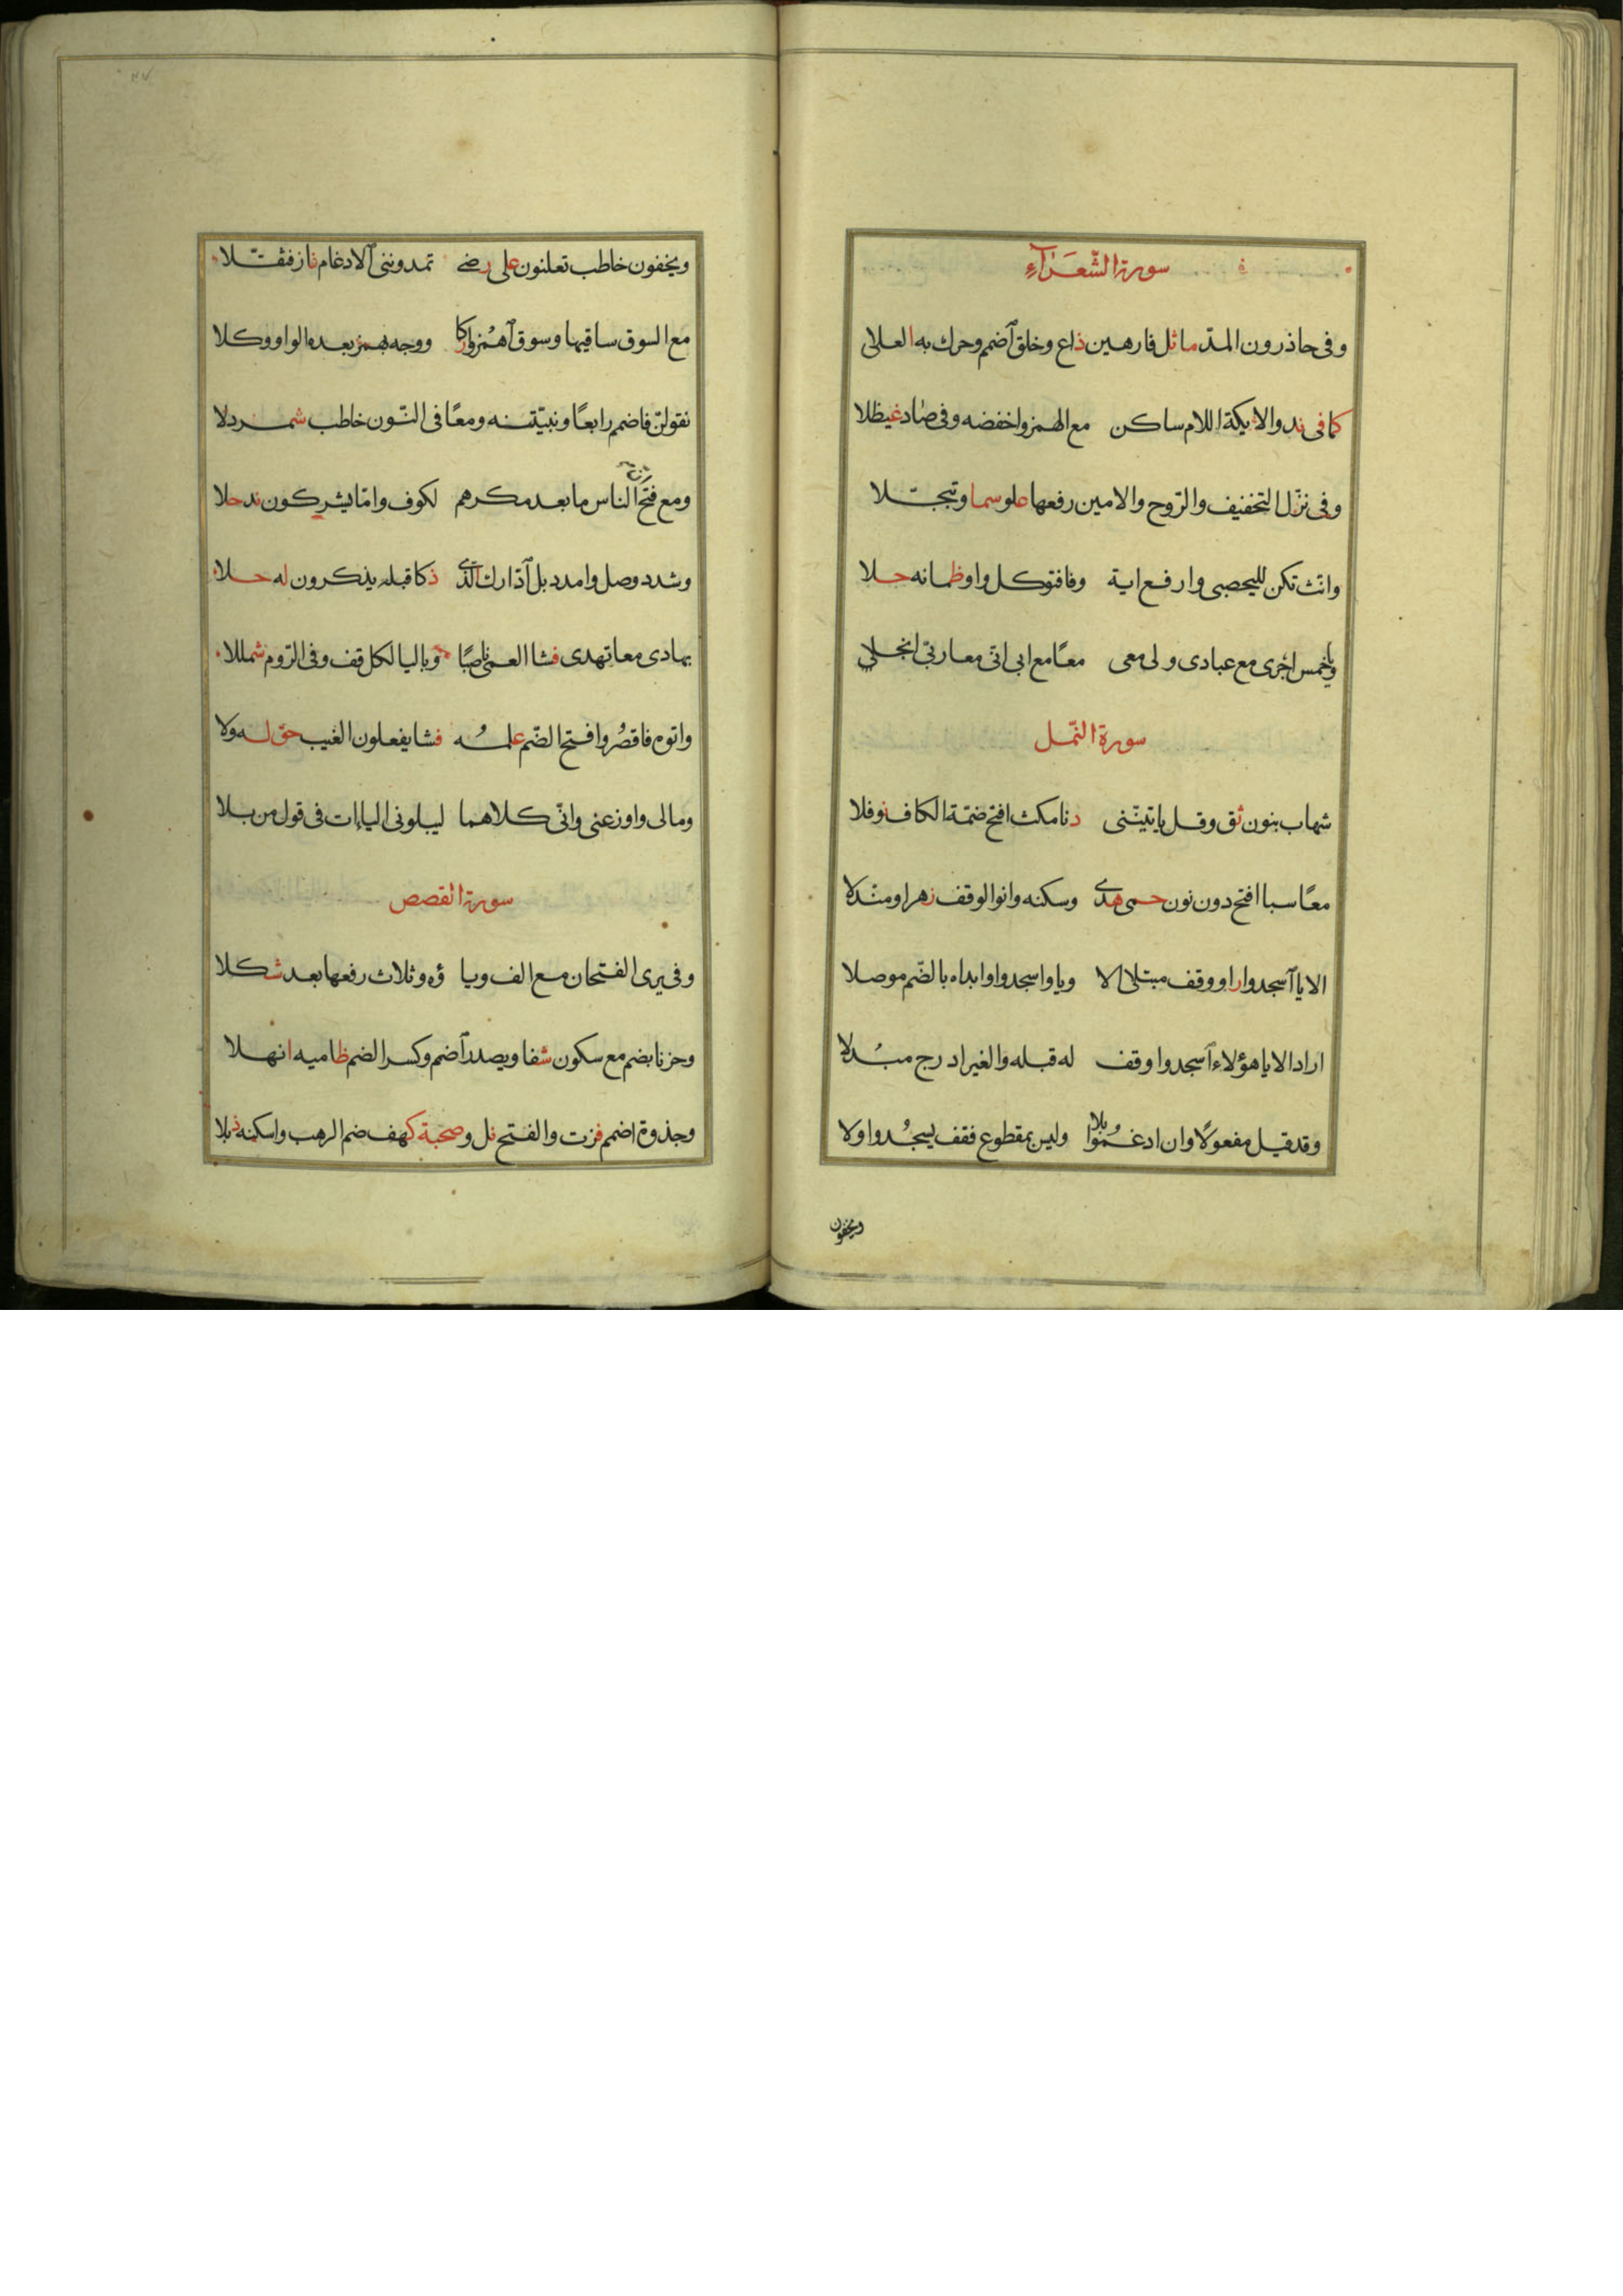 سورة الشّعرآء
وفى حاذرون المدّ ماثل فارهين ذاع وخلق ٱضمم وحرك به العلا
كما فى ند والايكة اللام ساكن مع الهمز واخفضه وفى صاد غيظلا
وفى نزّل التخفيف والرّوح والامين رفعها علو سما وتبجّلا
وانّث تكن لليحصبى وارفع اية وفا فتوكل واو ظمانه حلا
ويا خمس اجرى مع عبادى ولى معى معًا مع ابى انّى معا ربّى انجلى
سورة النّمل
شهاب بنون ثق وقل ياتيننى دنا مكث افتح ضمّة الكاف نوفلا
معًا سبا افتح دون نون حمى هدى وسكنه وانوا الوقف زهرا ومندلا
الا يا ٱسجدوا راو وقف مبتلى الا ويا واسجدوا وابداه بالضّم موصلا
اراد الا يا هؤلاء ٱسجدوا وقف له قبله والغير ادرج مبُدلا
وقد قيل مفعولًا وان ادغموا بلا وليس بمقطوع فقف يسجُدوا ولا
ويخفون
ويخفون خاطب تعلنون على رضى تمدوننى ٱلادغام فاز فثقّلا
مع السوق ساقيها وسوق ٱهمُزوا زكا ووجه بهمز بعده الواو وكلا
نقولنّ فاضمم رابعًا ونبيّتنه ومعًا فى النّون خاطب شمردلا
ومع فتح انّ الناس ما بعد مكرهم لكوف وامّا يشركون ند حلا
وشدد وصل وامدد بل ٱدّارك الّذى ذكا قبله يذكرون له حلا
بهادى معا تهدى فشا العمى ناصبًا وباليا لكل قف وفى الرّوم شمللا
واتوه فاقصُر وافتح الضّم علمُه فشا يفعلون الغيب حقّ له ولا
ومالى واوزعنى وانّى كلاهما ليبلونى الياات فى قول من بلا
سورة القصص
وفى يرى الفتحان مع الف ويا ؤه وثلاث رفعها بعد شكلا
وحزنا بضم مع سكون شفا ويصدر ٱضمم وكسر الضم ظاميه انهلا
وجذوة اضمم فزت والفتح نل وصحبة كهف ضم الرهب واسكنه ذبلا